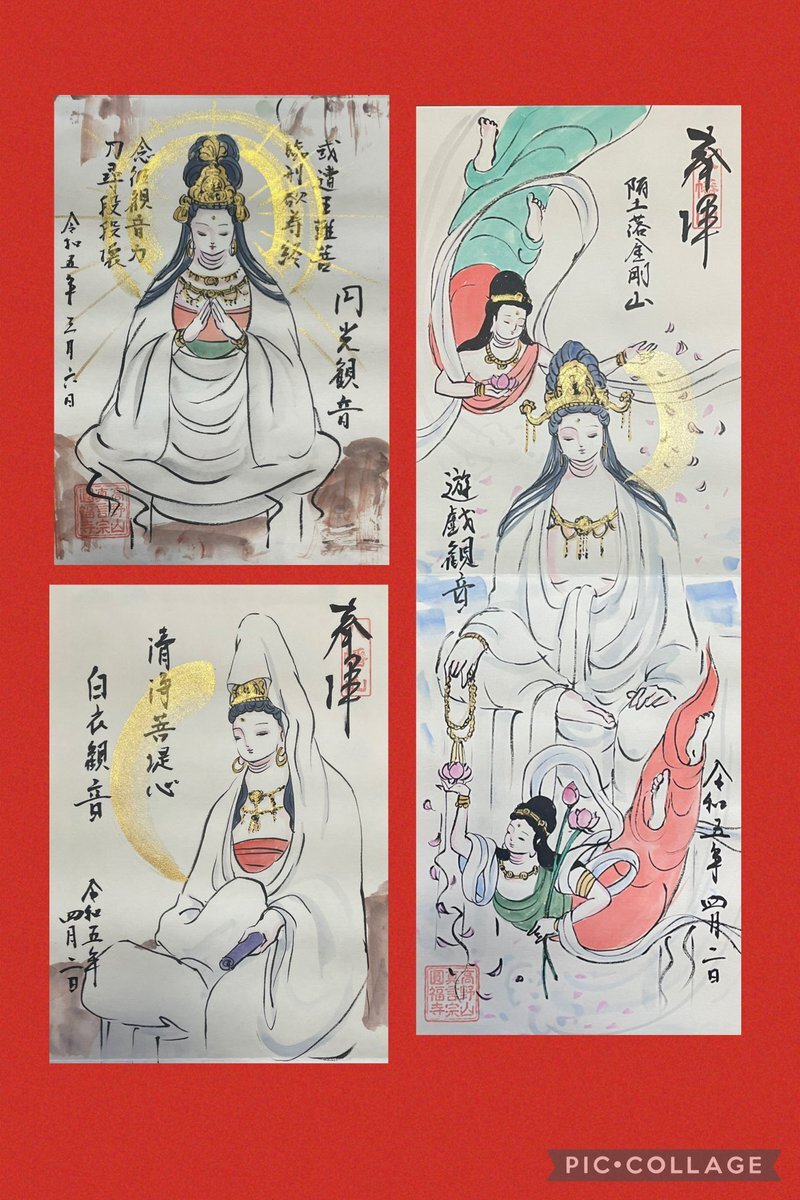 或遭王難苦
臨刑欲寿終
念彼觀音力
刀尋段段壊
円光觀音
令和五年三月六日
高野山
真言宗
圓福寺
奉拝
清浄菩提心
白衣觀音
令和五年
四月二日
奉拝
堕落金剛山
遊戯觀音
令和五年四月二日
高野山
真言宗
圓福寺
PIC•COLLAGE